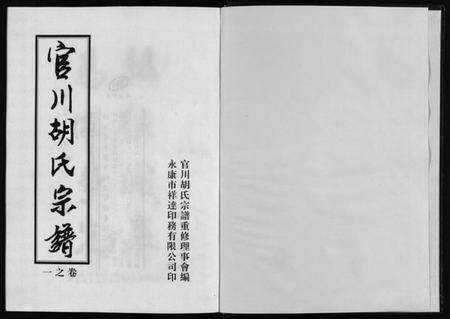 官川胡氏宗譜
一之卷
官川胡氏宗譜重修理事會編
永康市祥達印務有限公司印